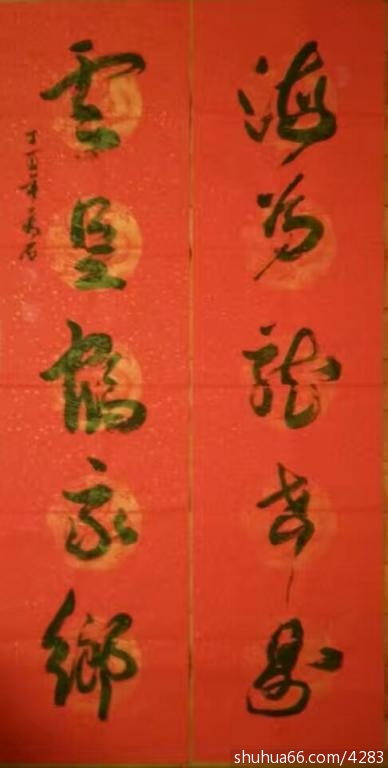 海為龍世界
雲是鶴家鄉
丁酉年
shuhua66.com/4283